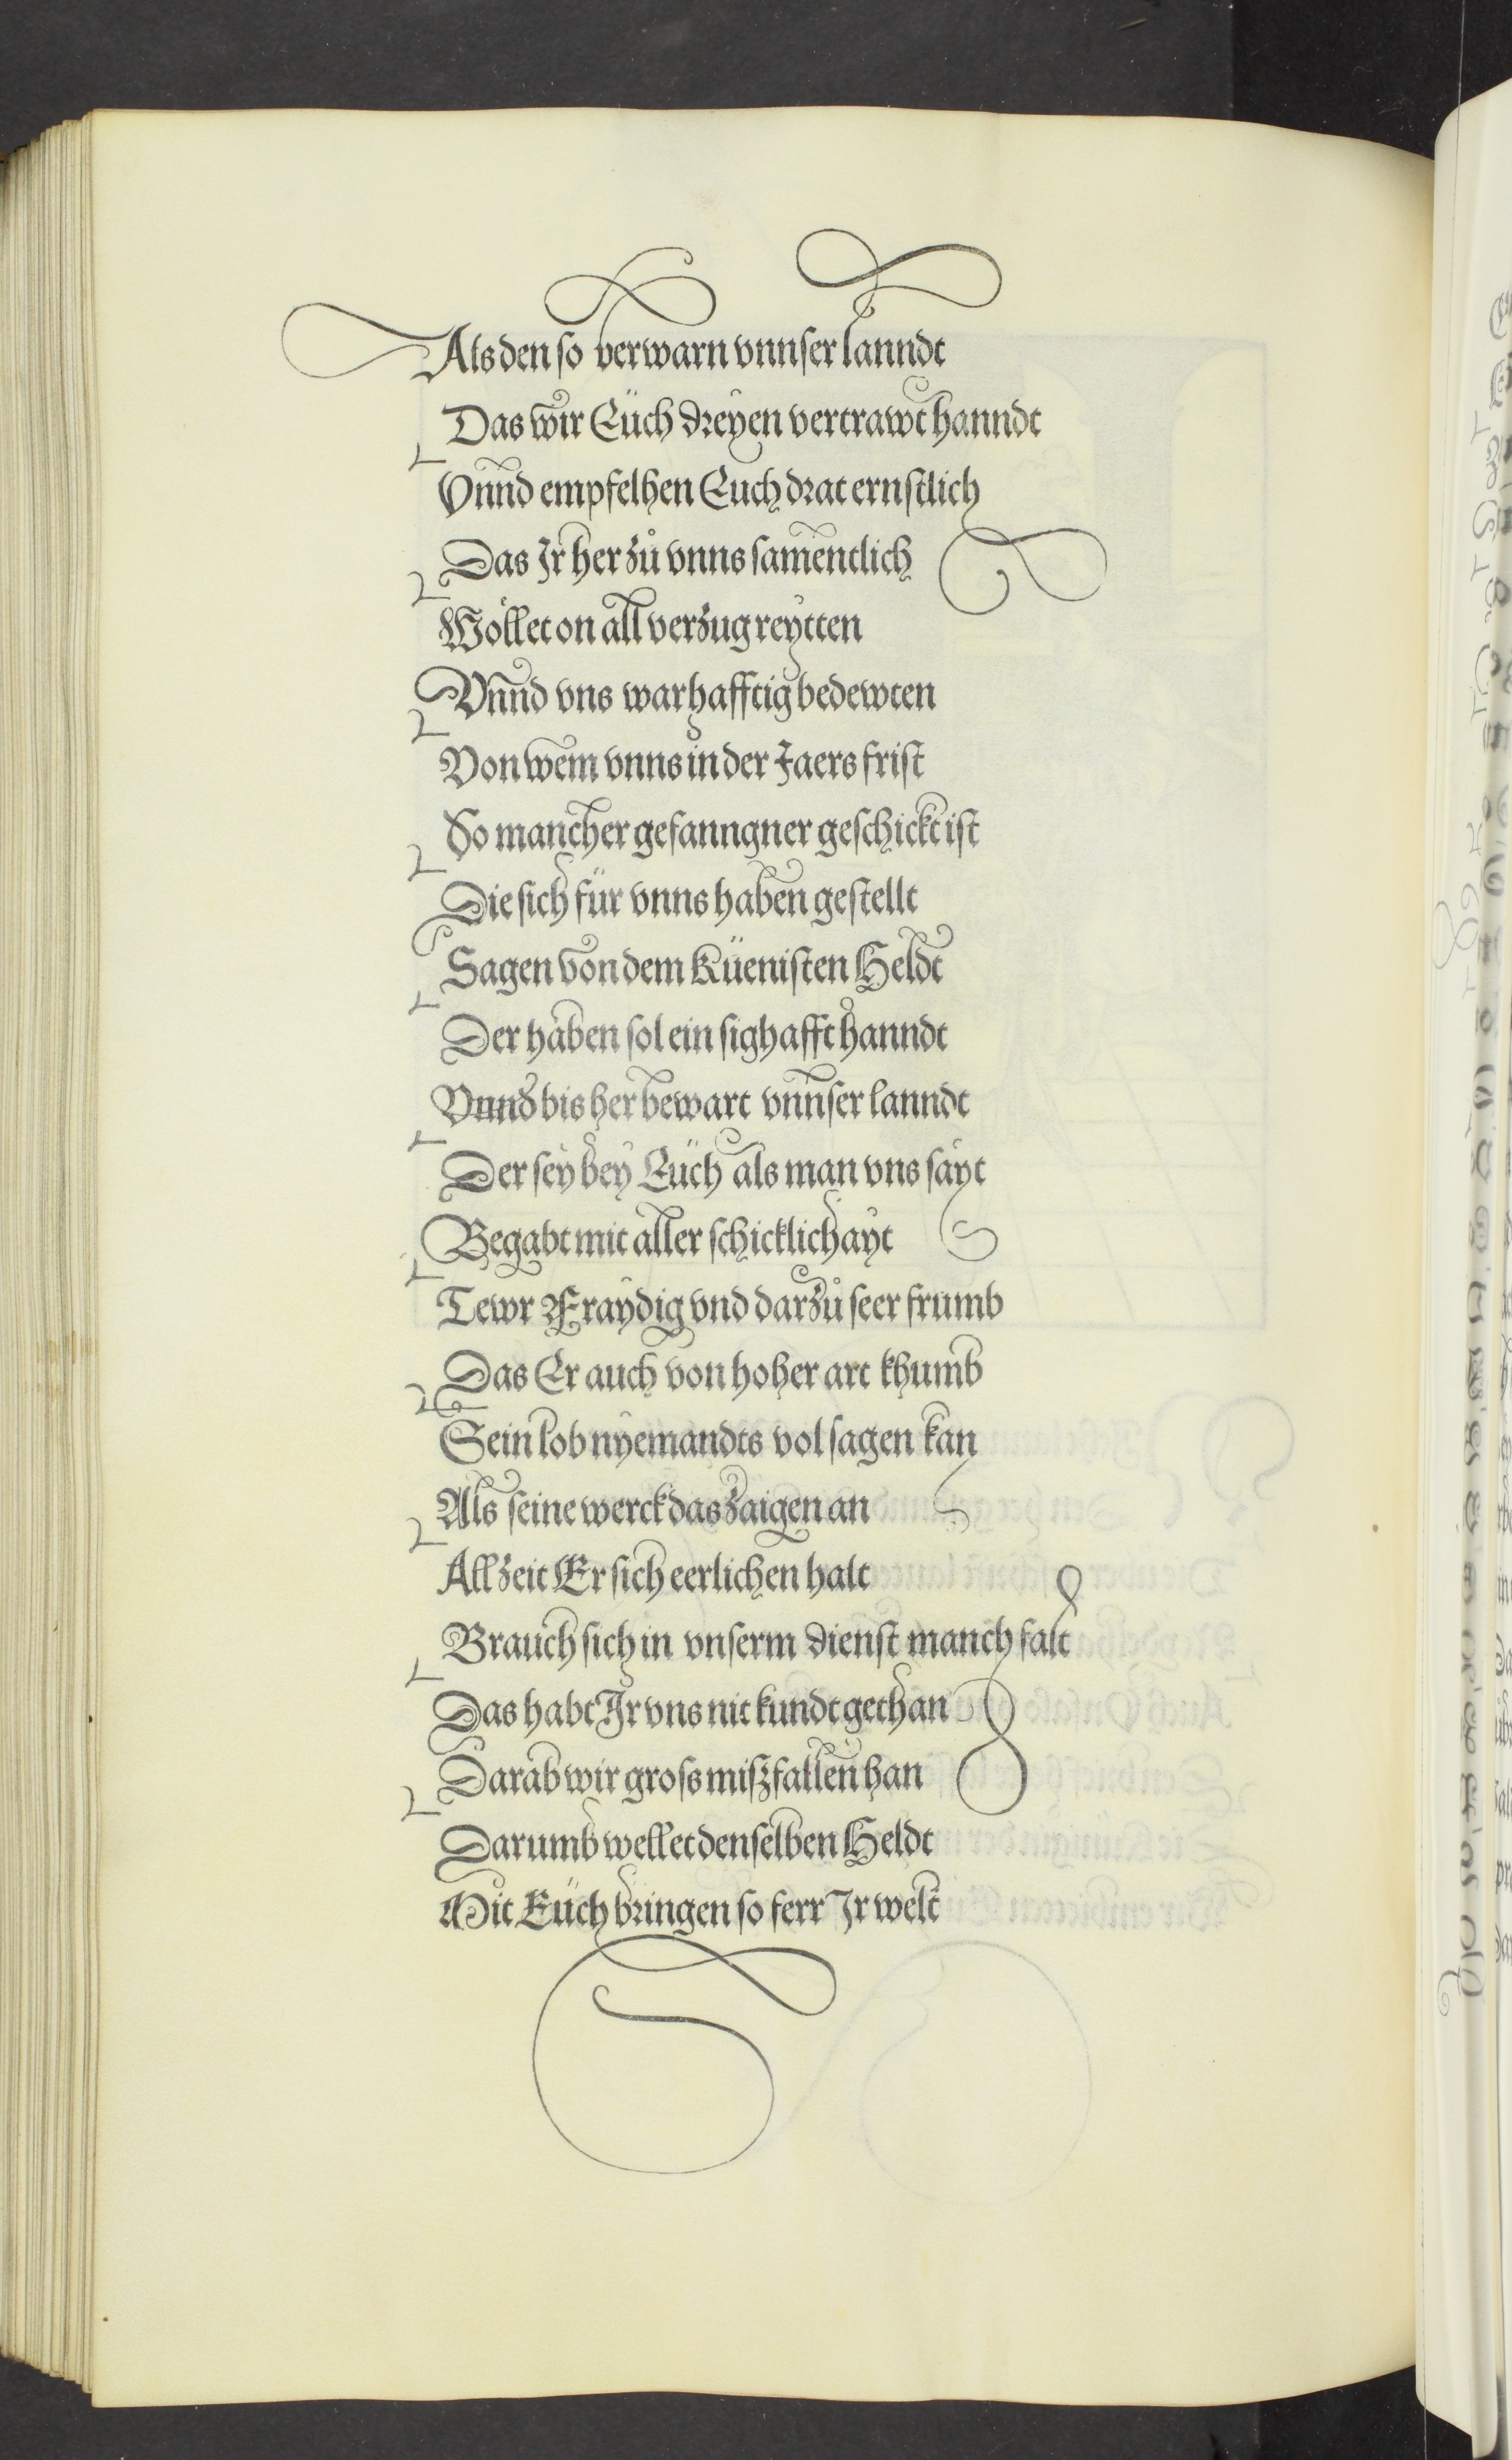 Als den so verwarn vnnser lanndt
Das wir Eüch dreyen vertrawt hanndt
Vnnd empfelhen Euch drat ernstlich
Das Jr her zů vnns samentlich
Wöllet on all verzug reytten
Vnnd vns warhafftig bedewten
Von wem vnns in der Jaers frist
So mancher gefanngner geschickt ist
Die sich für vnns haben gestellt
Sagen von dem Küenisten Heldt
Der haben sol ein sighafft hanndt
Vnnd bis her bewart vnnser lanndt
Der sey bey Eüch als man vns sayt
Begabt mit aller schicklichayt
Tewr Fraydig vnd darzů seer frumb
Das Er auch von hoher art khumb
Sein lob nyemandts vol sagen kan
Als seine werck das zaigen an
Allzeit Er sich eerlichen halt
Brauch sich in vnserm dienst manch falt
Das habt Jr vns nit kundt gethan
Darab wir gross miszfallen han
Darumb wellet denselben Heldt
Mit Eüch bringen so ferr Jr welt